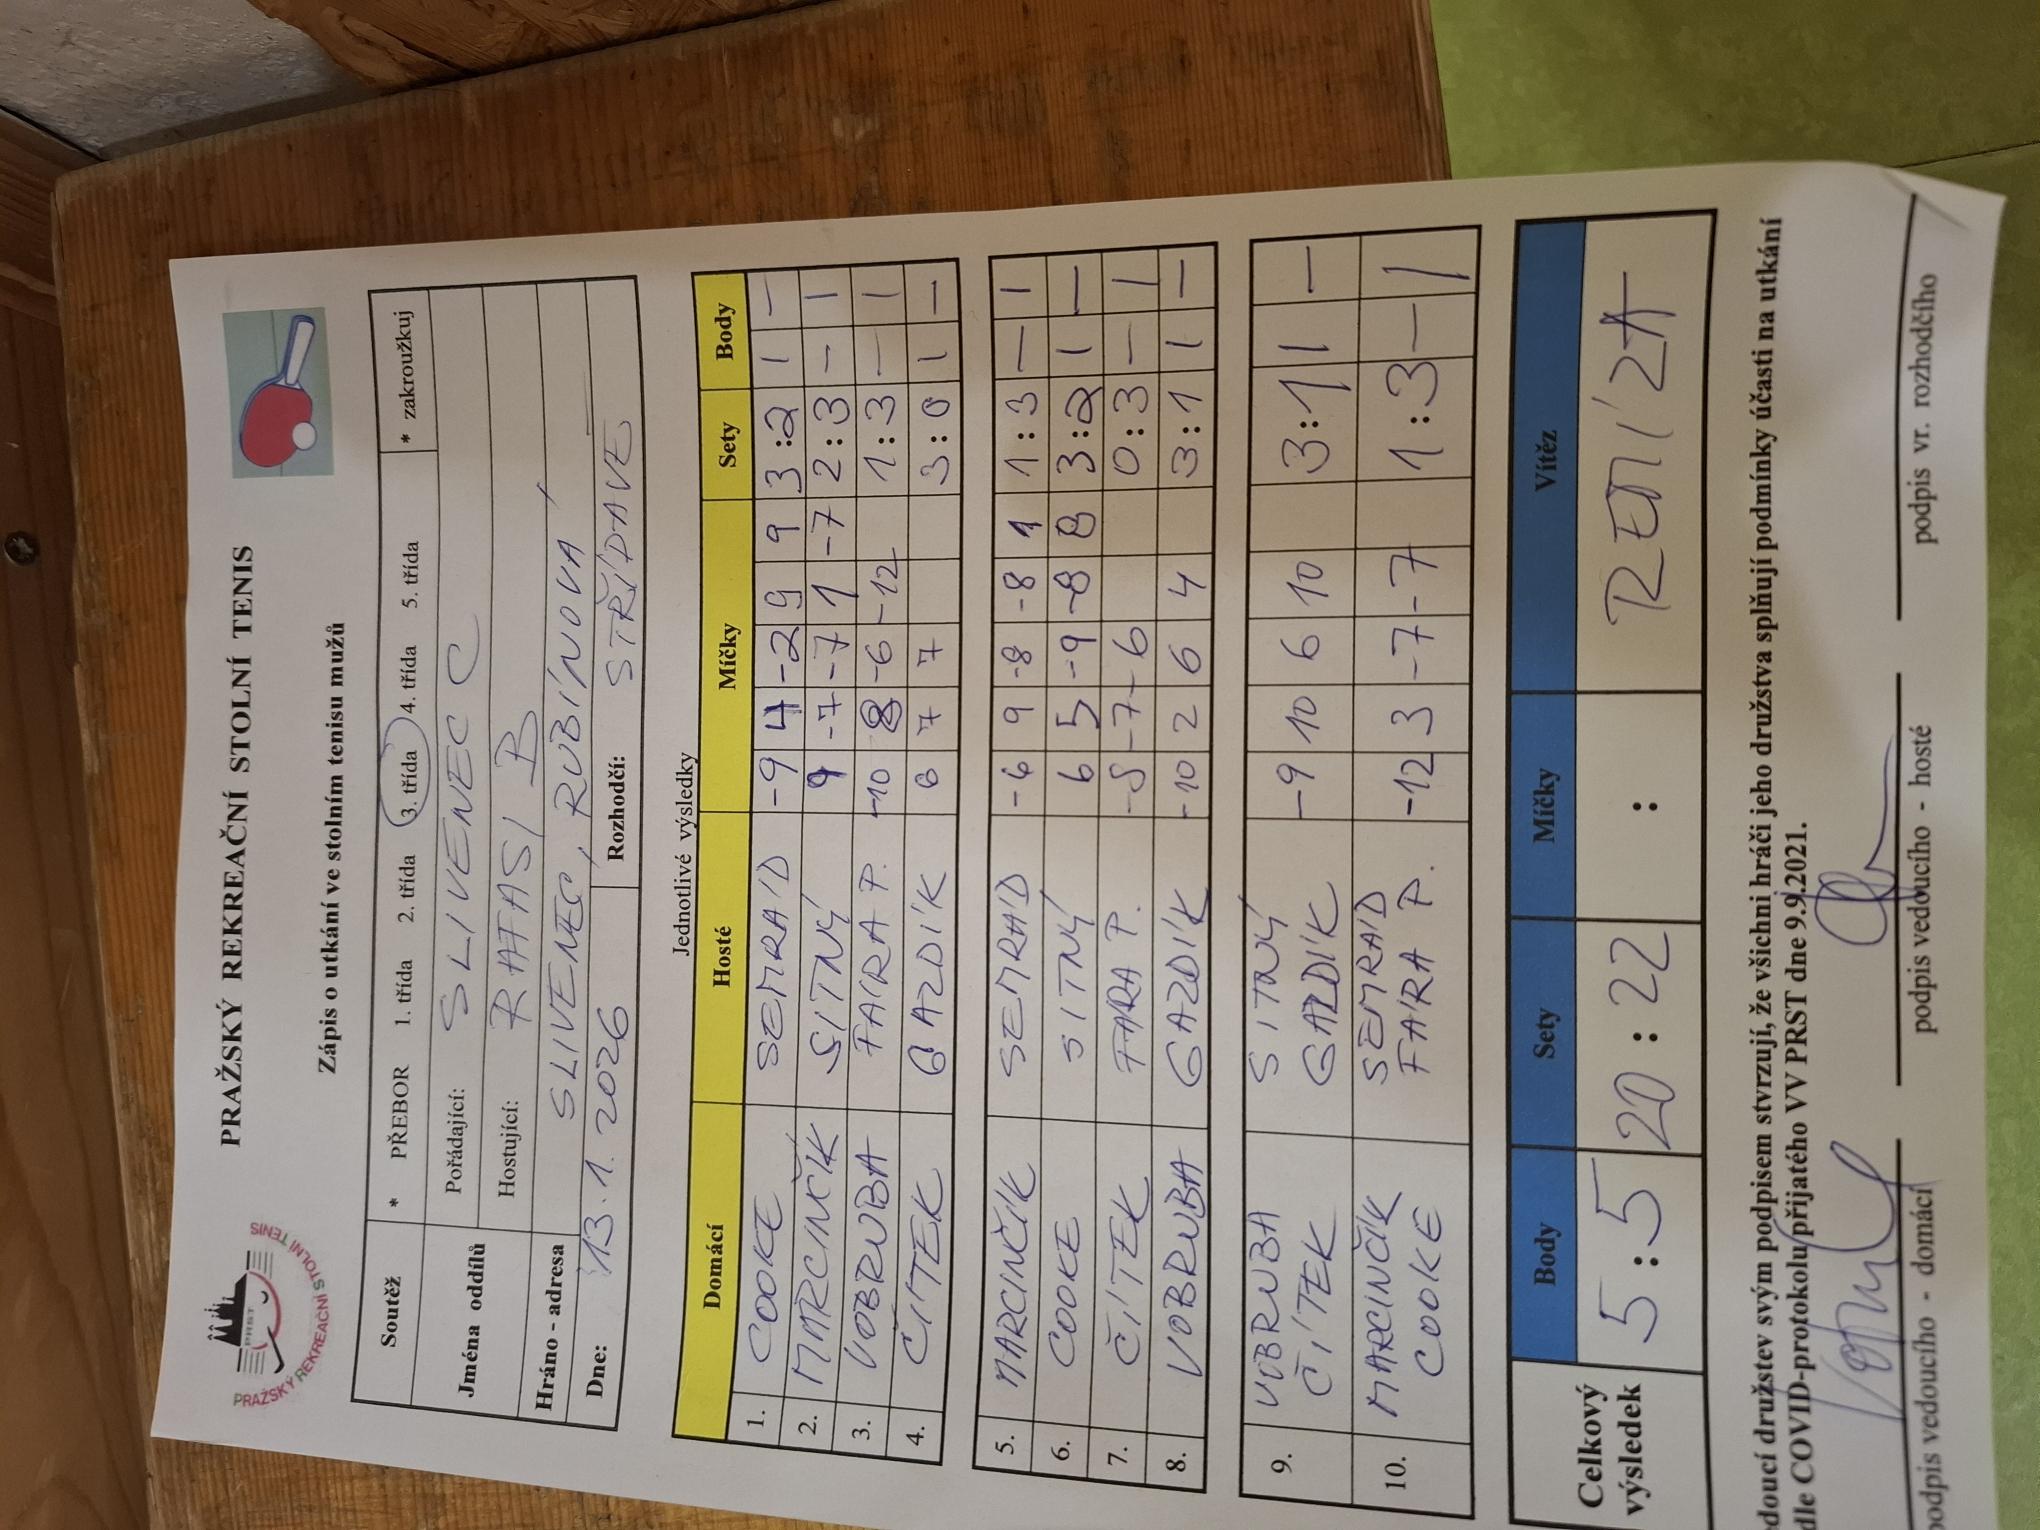 PRAŽSKÝ REKREAČNÍ STOLNÍ TENIS
PRST
PRAŽSKÝ REKREAČNÍ STOLNÍ TENIS
Zápis o utkání ve stolním tenisu mužů
Soutěž * PŘEBOR 1. třída 2. třída 3. třída 4. třída 5. třída * zakroužkuj
Jména oddílů Pořádající: SLIVENEC C
Hostující: RAFASI B
Hráno - adresa SLIVENEC, RUBÍNOVÁ
Dne: 13.1.2026 Rozhodčí: STŘÍDAVĚ
Jednotlivé výsledky
Domácí Hosté Míčky Sety Body
1. COOKE SEMRÁD -9 4 -2 9 9 3:2 1 –
2. MARCINČÍK SITNÝ 9 -7 -7 1 -7 2:3 – 1
3. VOBRUBA FÁRA P. -10 8 -6 -12 1:3 – 1
4. ČÍTEK GAZDÍK 6 7 7 3:0 1 –
5. MARCINČÍK SEMRÁD -6 9 -8 -8 1:3 – 1
6. COOKE SITNÝ 6 5 -9 -8 8 3:2 1 –
7. ČÍTEK FÁRA P. -8 -7 -6 0:3 – 1
8. VOBRUBA GAZDÍK -10 2 6 4 3:1 1 –
9. VOBRUBA SITNÝ -9 10 6 10 3:1 1 –
ČÍTEK GAZDÍK
10. MARCINČÍK SEMRÁD -12 3 -7 -7 1:3 – 1
COOKE FÁRA P.
Celkový výsledek Body Sety Míčky Vítěz
5:5 20:22 : REMÍZA
edoucí družstev svým podpisem stvrzují, že všichni hráči jeho družstva splňují podmínky účasti na utkání
dle COVID-protokolu přijatého VV PRST dne 9.9.2021.
podpis vedoucího - domácí podpis vedoucího - hosté podpis vr. rozhodčího